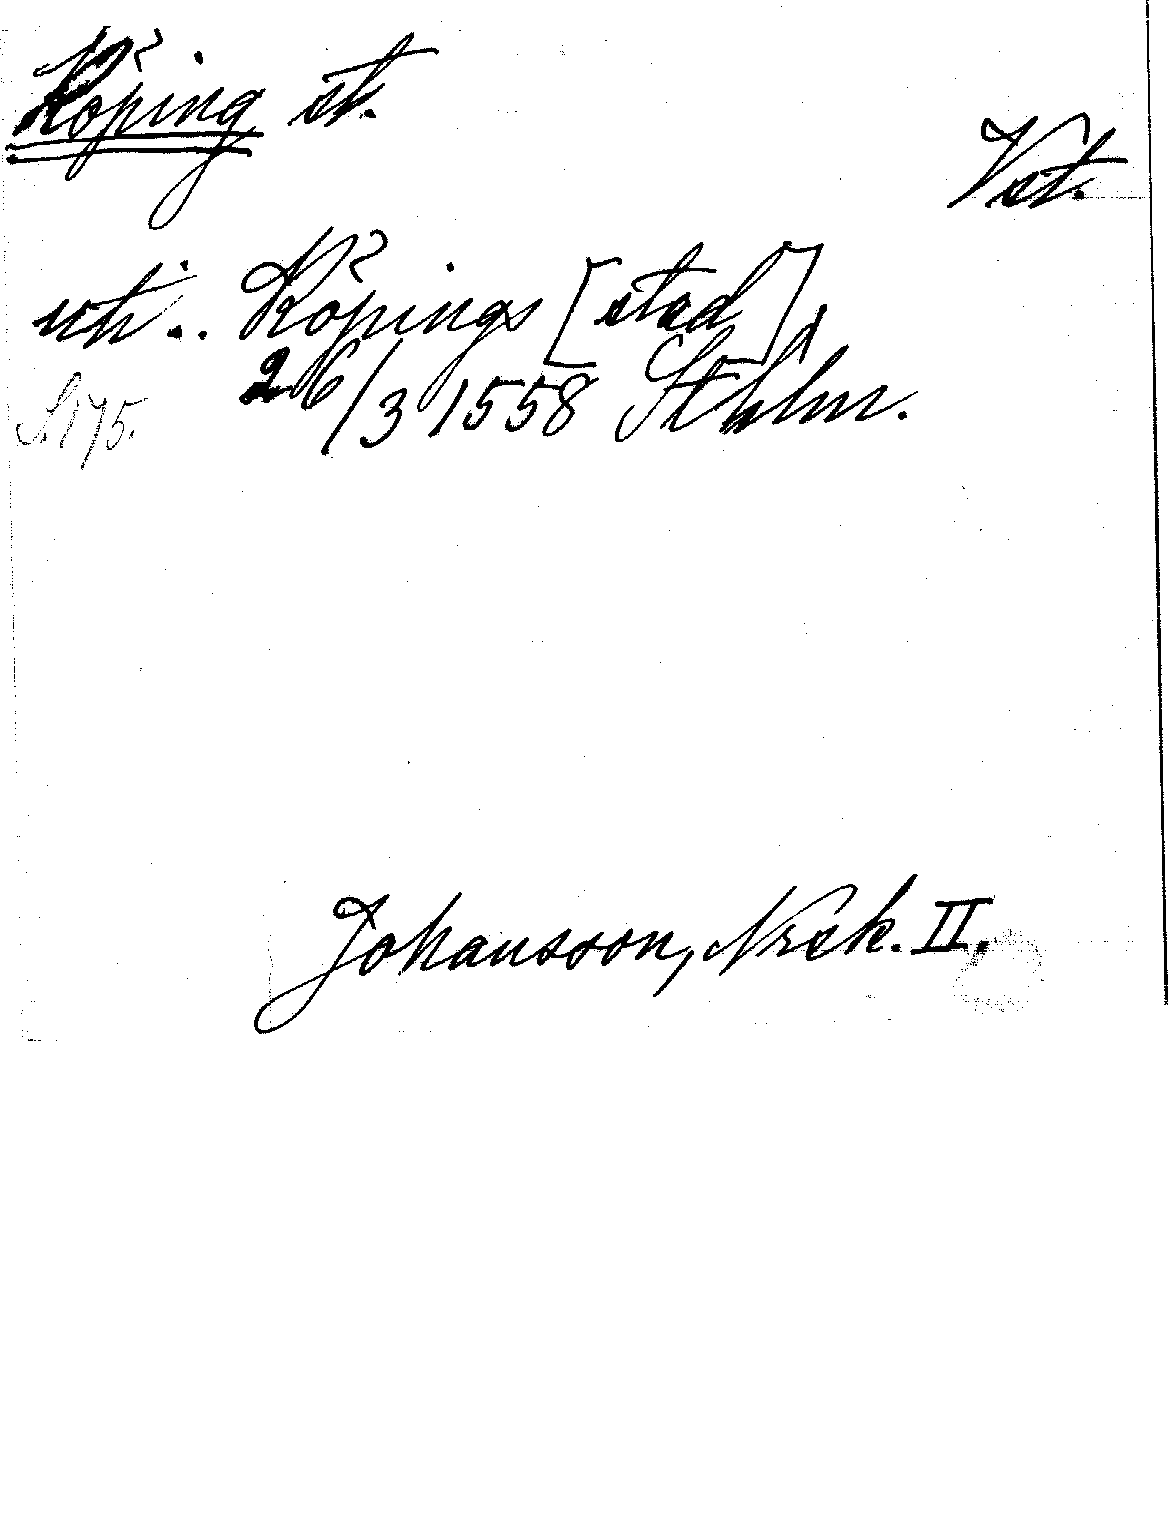 Köping st.
Vst.
uti .. Köpings [stad],
26/3 1558 Sthlm.
S. 175.
Johansson, Nrck. II.